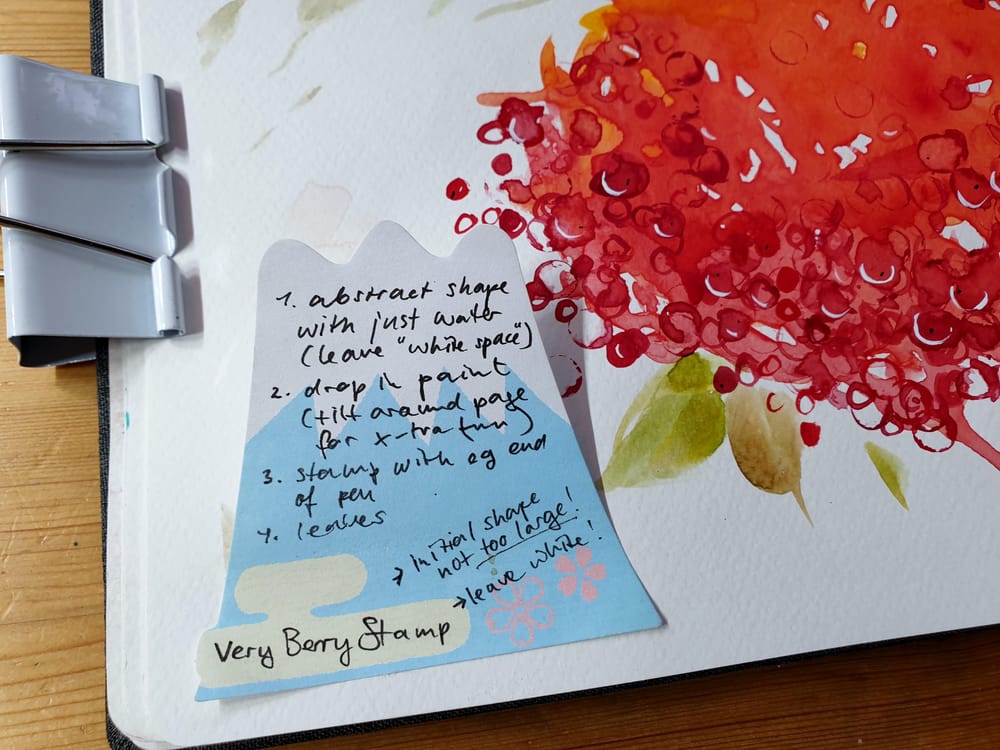 1. abstract shape
with just water
(leave "white space")
2. drop in paint
(tilt around page
for x-tra fun)
3. stamp with eg end
of pen
4. leaves
→ initial shape
not too large!
→ leave white!
Very Berry Stamp